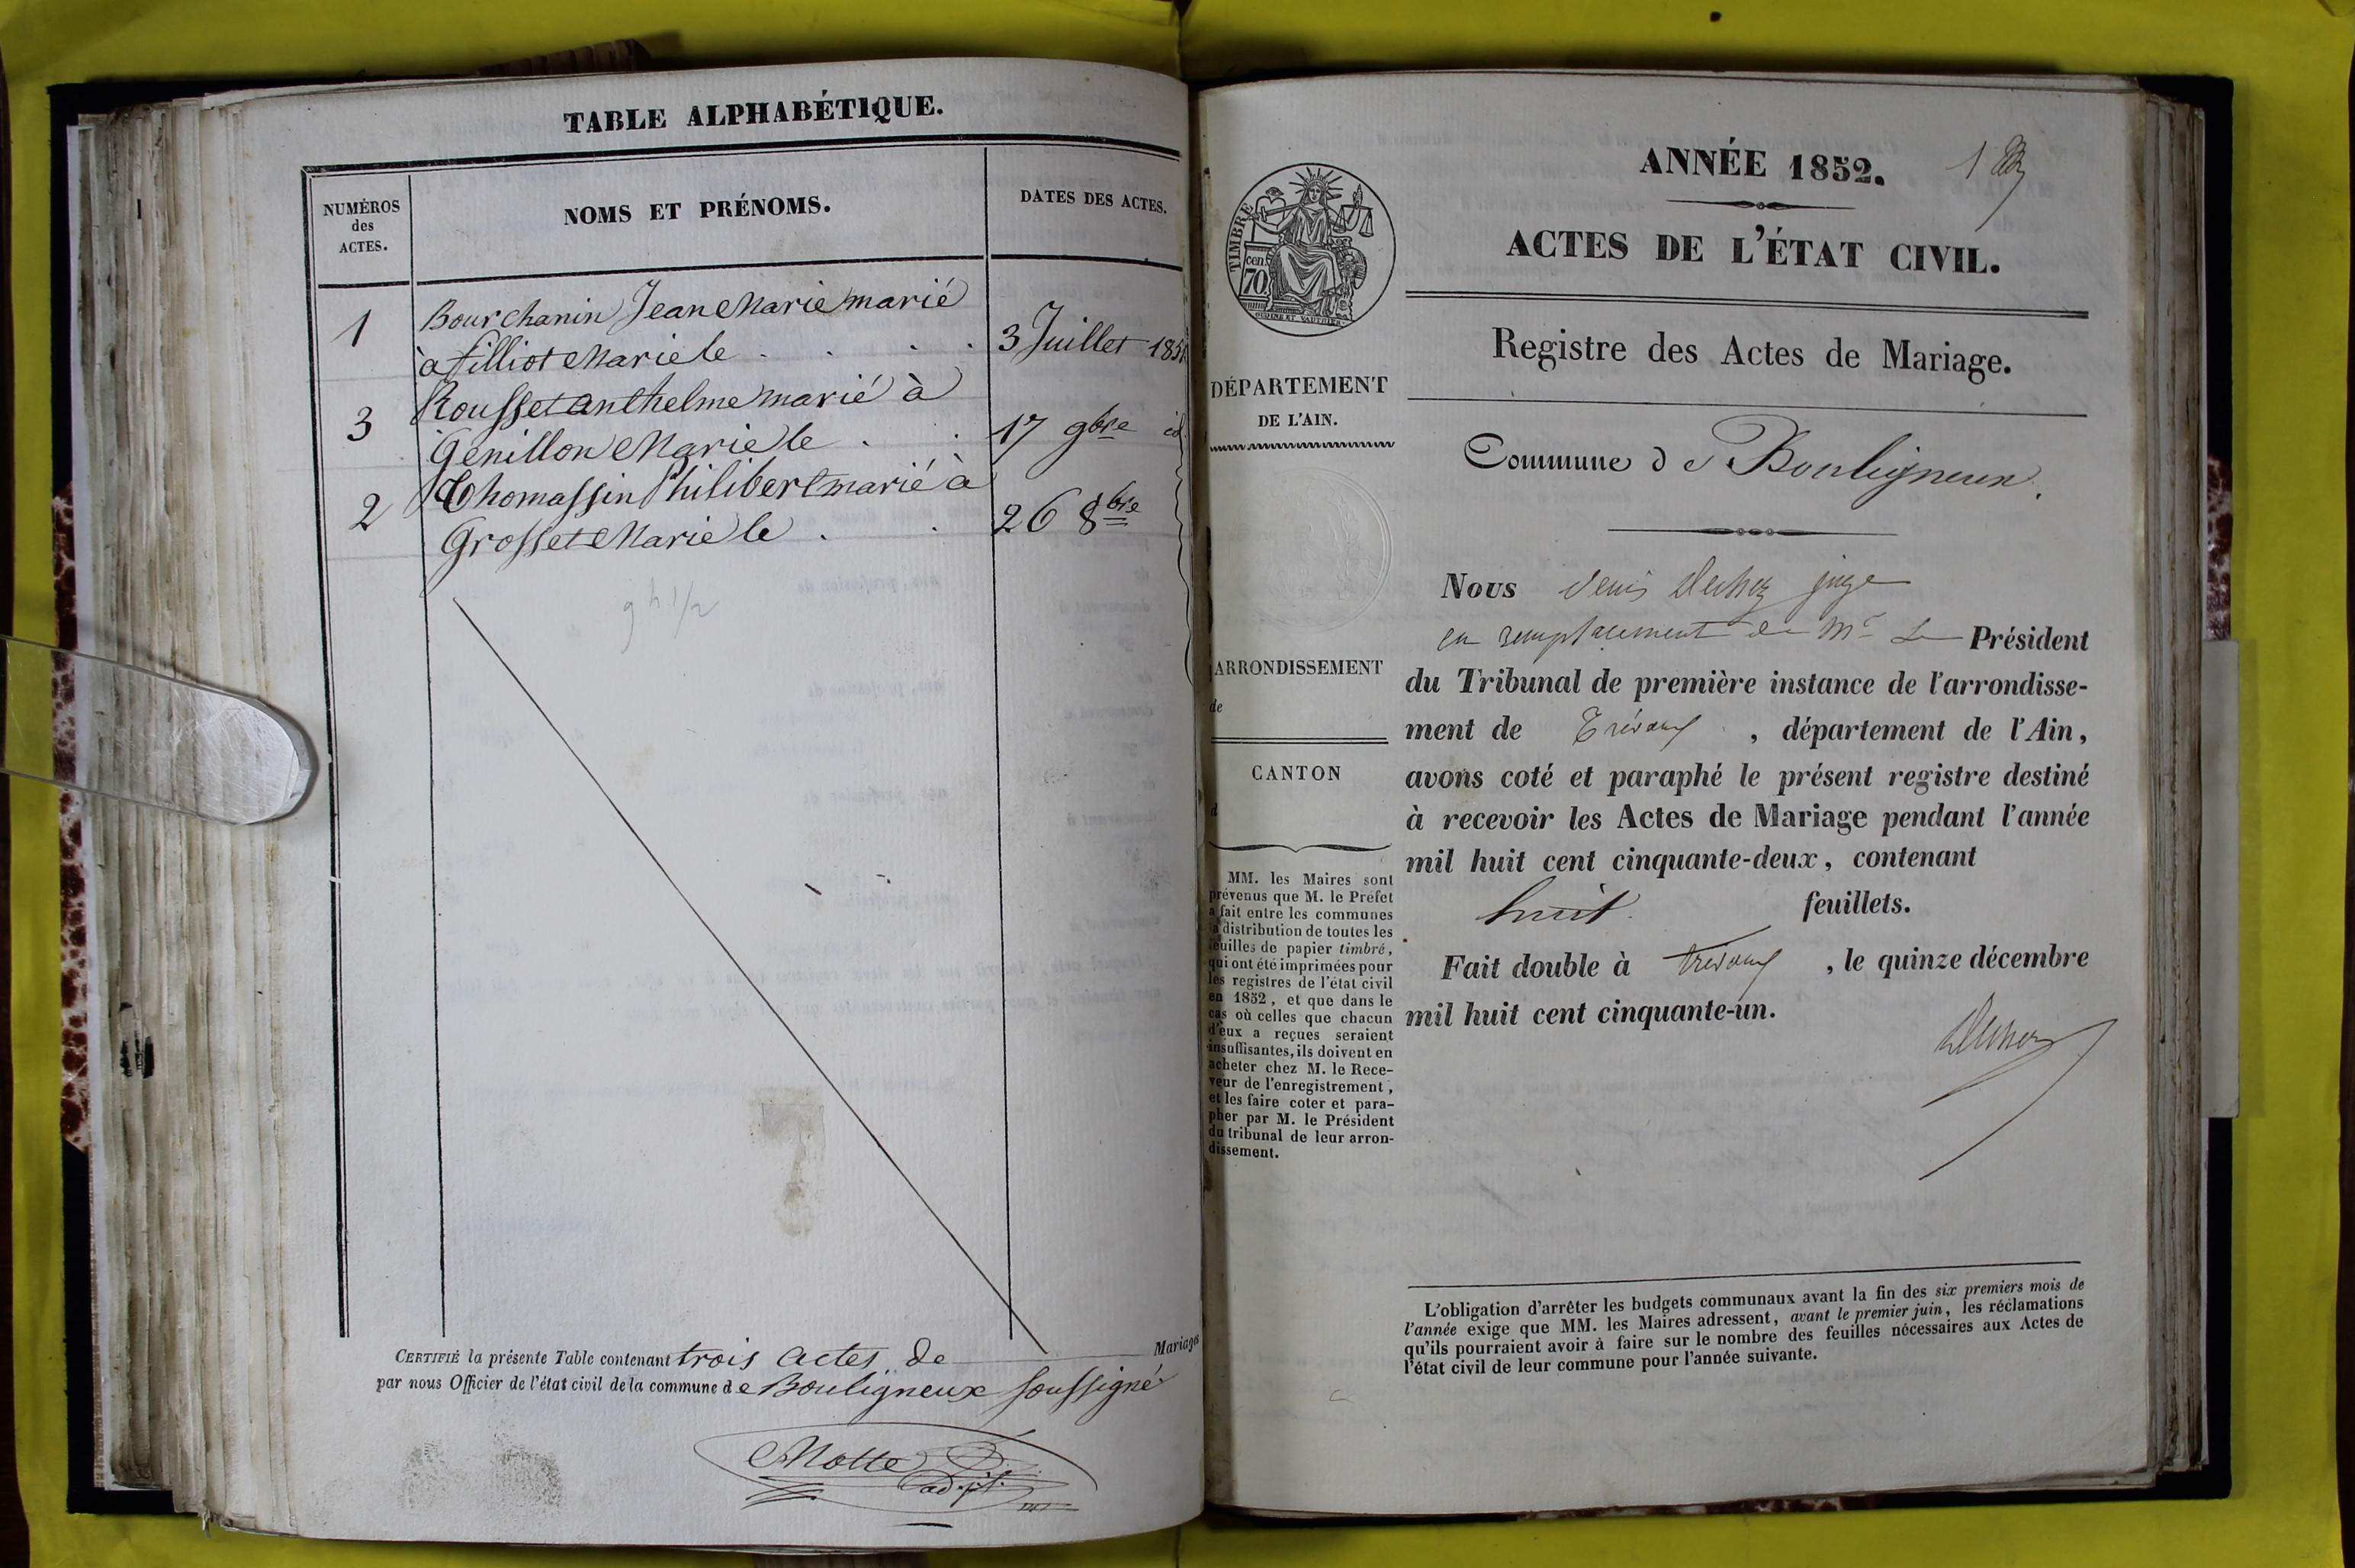 TABLE ALPHABÉTIQUE.
NUMÉROS
des
ACTES.
NOMS ET PRÉNOMS.
DATES DES ACTES.
1 Bourchanin Jean Marie marié
à filliot Marie le . . . . 3 Juillet 1851
3 Rousset anthelme marié à
Genillon Marie le . . 17 9bre id.
2 Thomassin Philibert marié à
Grosset Marie le . . 26 8bre
9 h 1/2
CERTIFIÉ la présente Table contenant trois actes de Mariage
par nous Officier de l'état civil de la commune de Bouligneux soussigné
Motte
adjt.
ANNÉE 1852. 1
ACTES DE L'ÉTAT CIVIL.
Registre des Actes de Mariage.
TIMBRE
70 cen.
OUDINÉ ET VAUTHIER
DÉPARTEMENT
DE L'AIN.
ARRONDISSEMENT
de
CANTON
d
MM. les Maires sont
prévenus que M. le Préfet
a fait entre les communes
la distribution de toutes les
feuilles de papier timbré,
qui ont été imprimées pour
les registres de l'état civil
en 1852, et que dans le
cas où celles que chacun
d'eux a reçues seraient
insuffisantes, ils doivent en
acheter chez M. le Rece-
veur de l'enregistrement,
et les faire coter et para-
pher par M. le Président
du tribunal de leur arron-
dissement.
Commune de Bouligneux.
Nous Denis juge
en remplacement de Mr Le Président
du Tribunal de première instance de l'arrondisse-
ment de Trévoux, département de l'Ain,
avons coté et paraphé le présent registre destiné
à recevoir les Actes de Mariage pendant l'année
mil huit cent cinquante-deux, contenant
huit feuillets.
Fait double à trévoux, le quinze décembre
mil huit cent cinquante-un.
L'obligation d'arrêter les budgets communaux avant la fin des six premiers mois de
l'année exige que MM. les Maires adressent, avant le premier juin, les réclamations
qu'ils pourraient avoir à faire sur le nombre des feuilles nécessaires aux Actes de
l'état civil de leur commune pour l'année suivante.